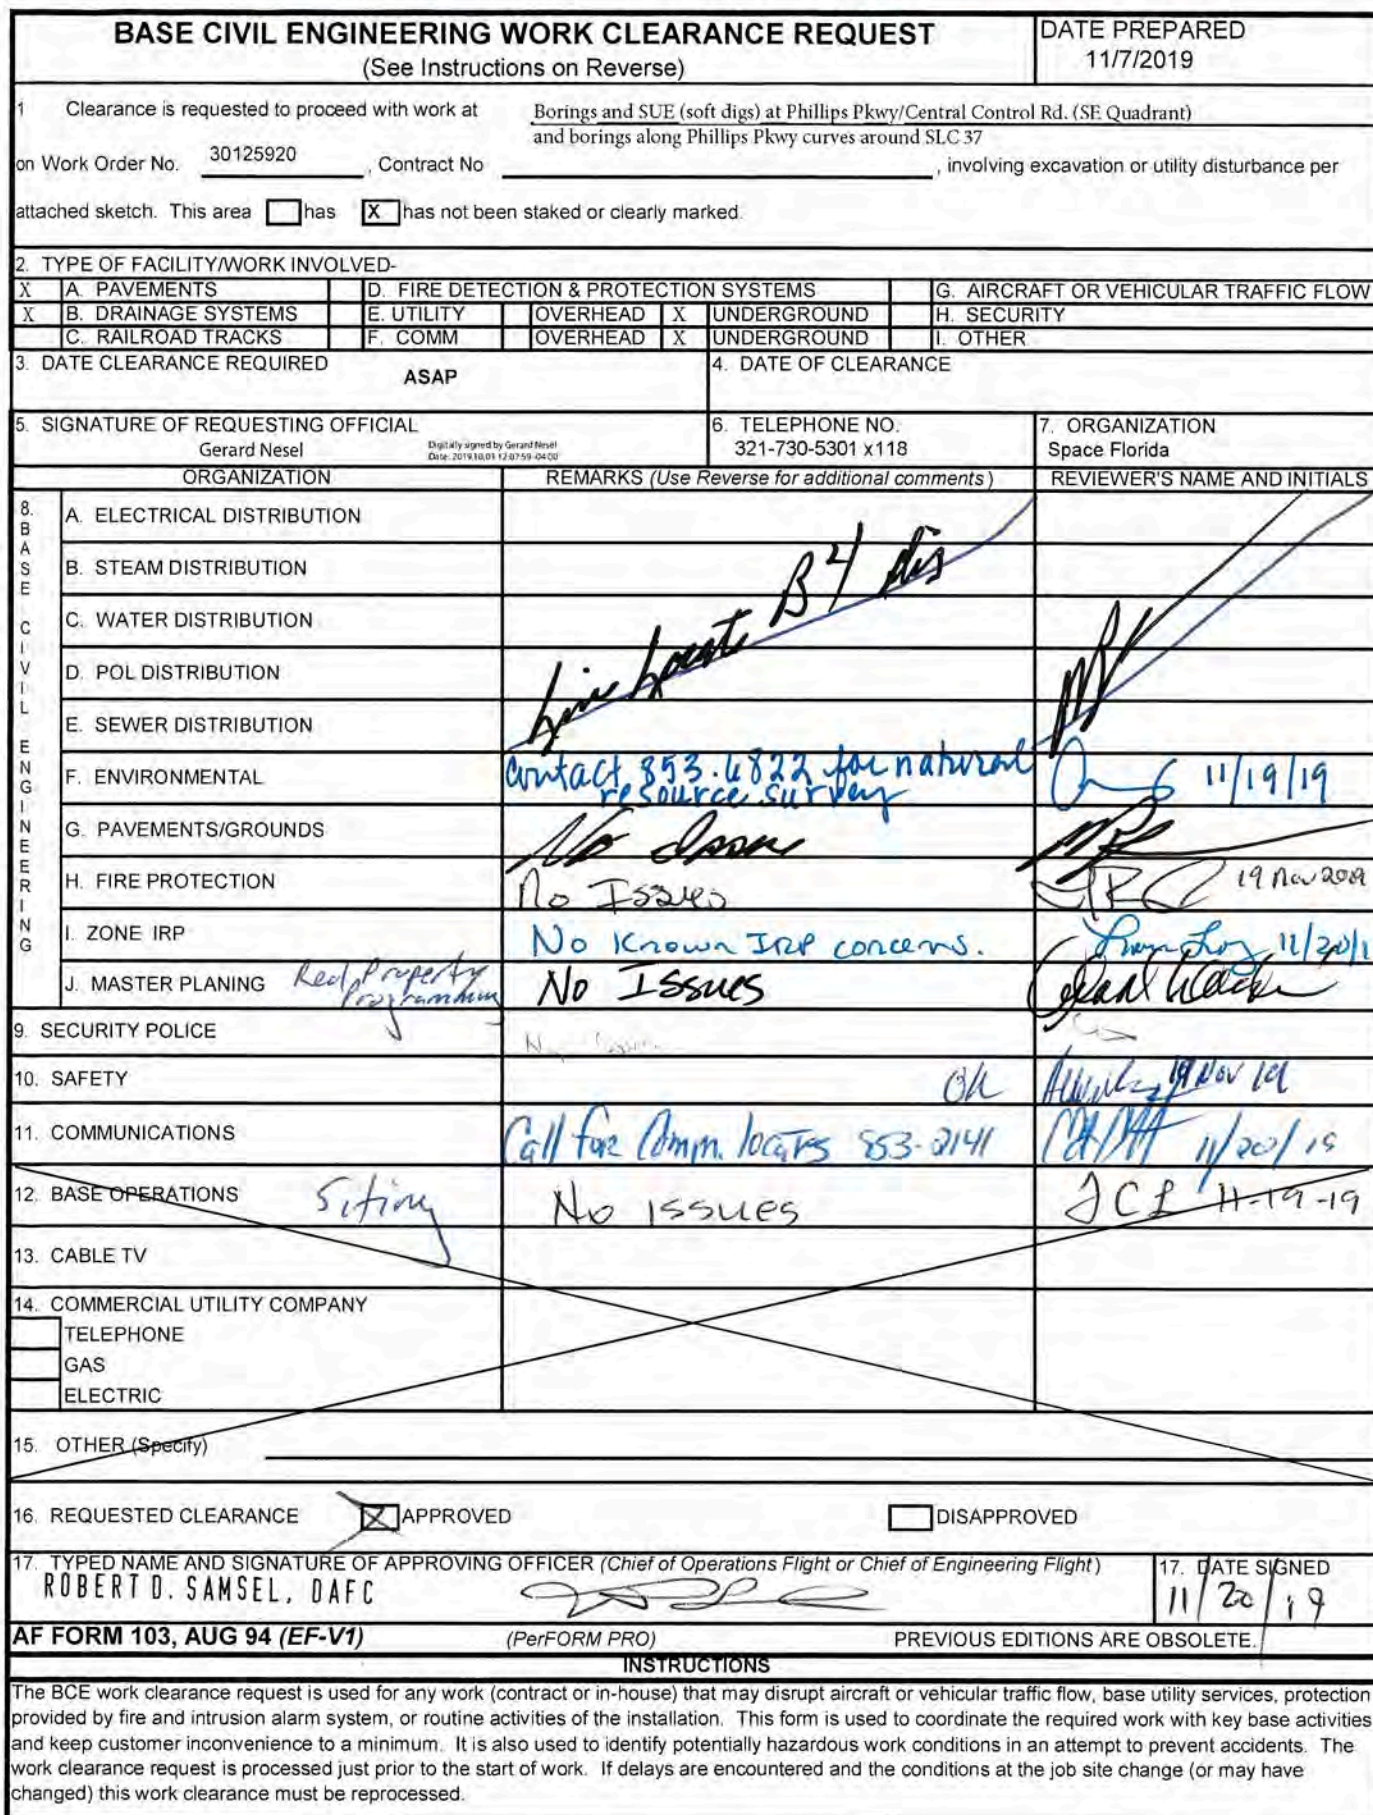 BASE CIVIL ENGINEERING WORK CLEARANCE REQUEST
(See Instructions on Reverse)
DATE PREPARED
11/7/2019
1 Clearance is requested to proceed with work at Borings and SUE (soft digs) at Phillips Pkwy/Central Control Rd. (SE Quadrant)
and borings along Phillips Pkwy curves around SLC 37
on Work Order No. 30125920 , Contract No , involving excavation or utility disturbance per
attached sketch. This area has X has not been staked or clearly marked.
2. TYPE OF FACILITY/WORK INVOLVED-
X A. PAVEMENTS D. FIRE DETECTION & PROTECTION SYSTEMS G. AIRCRAFT OR VEHICULAR TRAFFIC FLOW
X B. DRAINAGE SYSTEMS E. UTILITY OVERHEAD X UNDERGROUND H. SECURITY
C. RAILROAD TRACKS F. COMM OVERHEAD X UNDERGROUND I. OTHER
3. DATE CLEARANCE REQUIRED
ASAP
4. DATE OF CLEARANCE
5. SIGNATURE OF REQUESTING OFFICIAL
Gerard Nesel
Digitally signed by Gerard Nesel
Date: 2019.10.01 12:07:59 -04:00
6. TELEPHONE NO.
321-730-5301 x118
7. ORGANIZATION
Space Florida
ORGANIZATION REMARKS (Use Reverse for additional comments) REVIEWER'S NAME AND INITIALS
8. BASE CIVIL ENGINEERING
A. ELECTRICAL DISTRIBUTION
B. STEAM DISTRIBUTION
C. WATER DISTRIBUTION
D. POL DISTRIBUTION
E. SEWER DISTRIBUTION
Line Locate B4 dig
F. ENVIRONMENTAL contact 853.6822 for natural 11/19/19
resource survey
G. PAVEMENTS/GROUNDS No Issue
H. FIRE PROTECTION No Issues 19 Nov 2019
I. ZONE IRP No Known IRP concerns. 11/20/1
J. MASTER PLANING Real Property No Issues
Programming
9. SECURITY POLICE
10. SAFETY OK 19 Nov 19
11. COMMUNICATIONS Call for Comm. locates 853-2141 11/20/19
12. BASE OPERATIONS Siting No issues JCL 11-19-19
13. CABLE TV
14. COMMERCIAL UTILITY COMPANY
TELEPHONE
GAS
ELECTRIC
15. OTHER (Specify)
16. REQUESTED CLEARANCE X APPROVED DISAPPROVED
17. TYPED NAME AND SIGNATURE OF APPROVING OFFICER (Chief of Operations Flight or Chief of Engineering Flight)
ROBERT D. SAMSEL, DAFC
17. DATE SIGNED
11/20/19
AF FORM 103, AUG 94 (EF-V1) (PerFORM PRO) PREVIOUS EDITIONS ARE OBSOLETE.
INSTRUCTIONS
The BCE work clearance request is used for any work (contract or in-house) that may disrupt aircraft or vehicular traffic flow, base utility services, protection
provided by fire and intrusion alarm system, or routine activities of the installation. This form is used to coordinate the required work with key base activities
and keep customer inconvenience to a minimum. It is also used to identify potentially hazardous work conditions in an attempt to prevent accidents. The
work clearance request is processed just prior to the start of work. If delays are encountered and the conditions at the job site change (or may have
changed) this work clearance must be reprocessed.